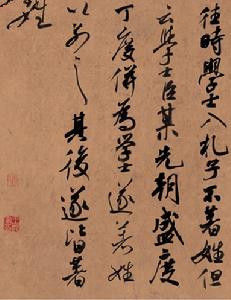 往時學士入札子不著姓但
云學士臣某先朝盛度
丁度併為学士遂著姓
以別之其後遂皆著
姓